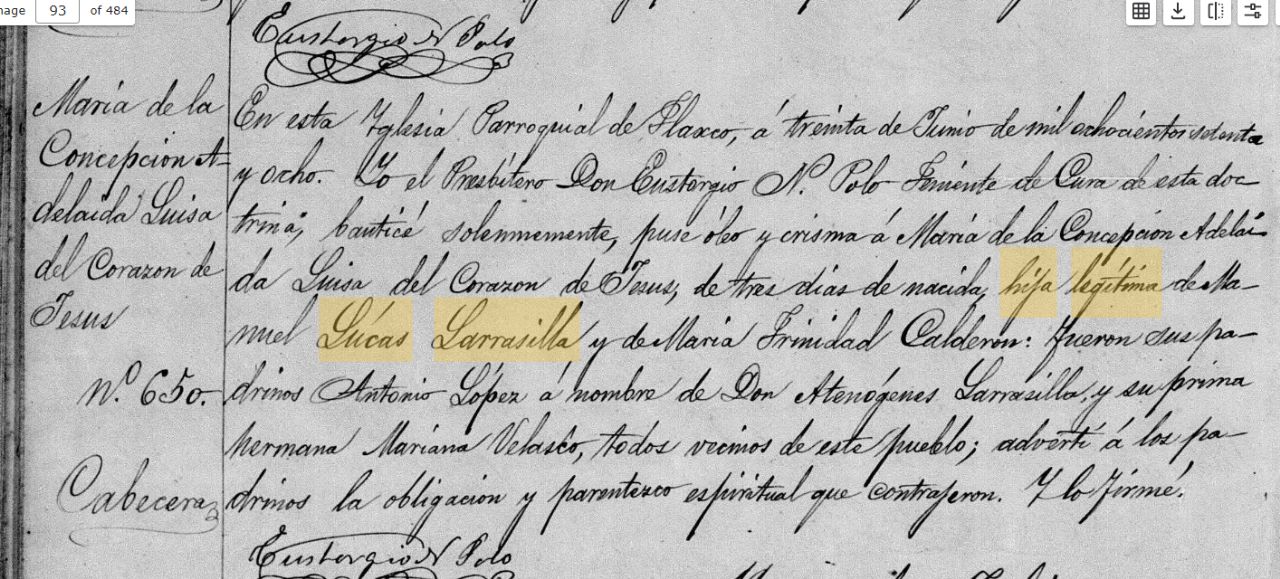 93 of 484
Eustorgio N Polo
María de la
Concepcion A-
delaida Luisa
del Corazon de
Jesus
N.º 650.
Cabecera
En esta Yglesia Parroquial de Tlaxco, á treinta de Junio de mil ochocientos setenta
y ocho. Yo el Presbítero Don Eustorgio N. Polo Teniente de Cura de esta doc-
trina, bauticé solemnemente, puse óleo y crisma á María de la Concepcion Adelai-
da Luisa del Corazon de Jesus, de tres dias de nacida, hija legítima de Ma-
nuel Lúcas Larrasilla y de María Trinidad Calderon: Fueron sus pa-
drinos Antonio López á nombre de Don Atenógenes Larrasilla, y su prima
hermana Mariana Velasco, todos vecinos de este pueblo; advertí á los pa-
drinos la obligacion y parentezco espiritual que contrajeron. Y lo firmé.
Eustorgio N Polo